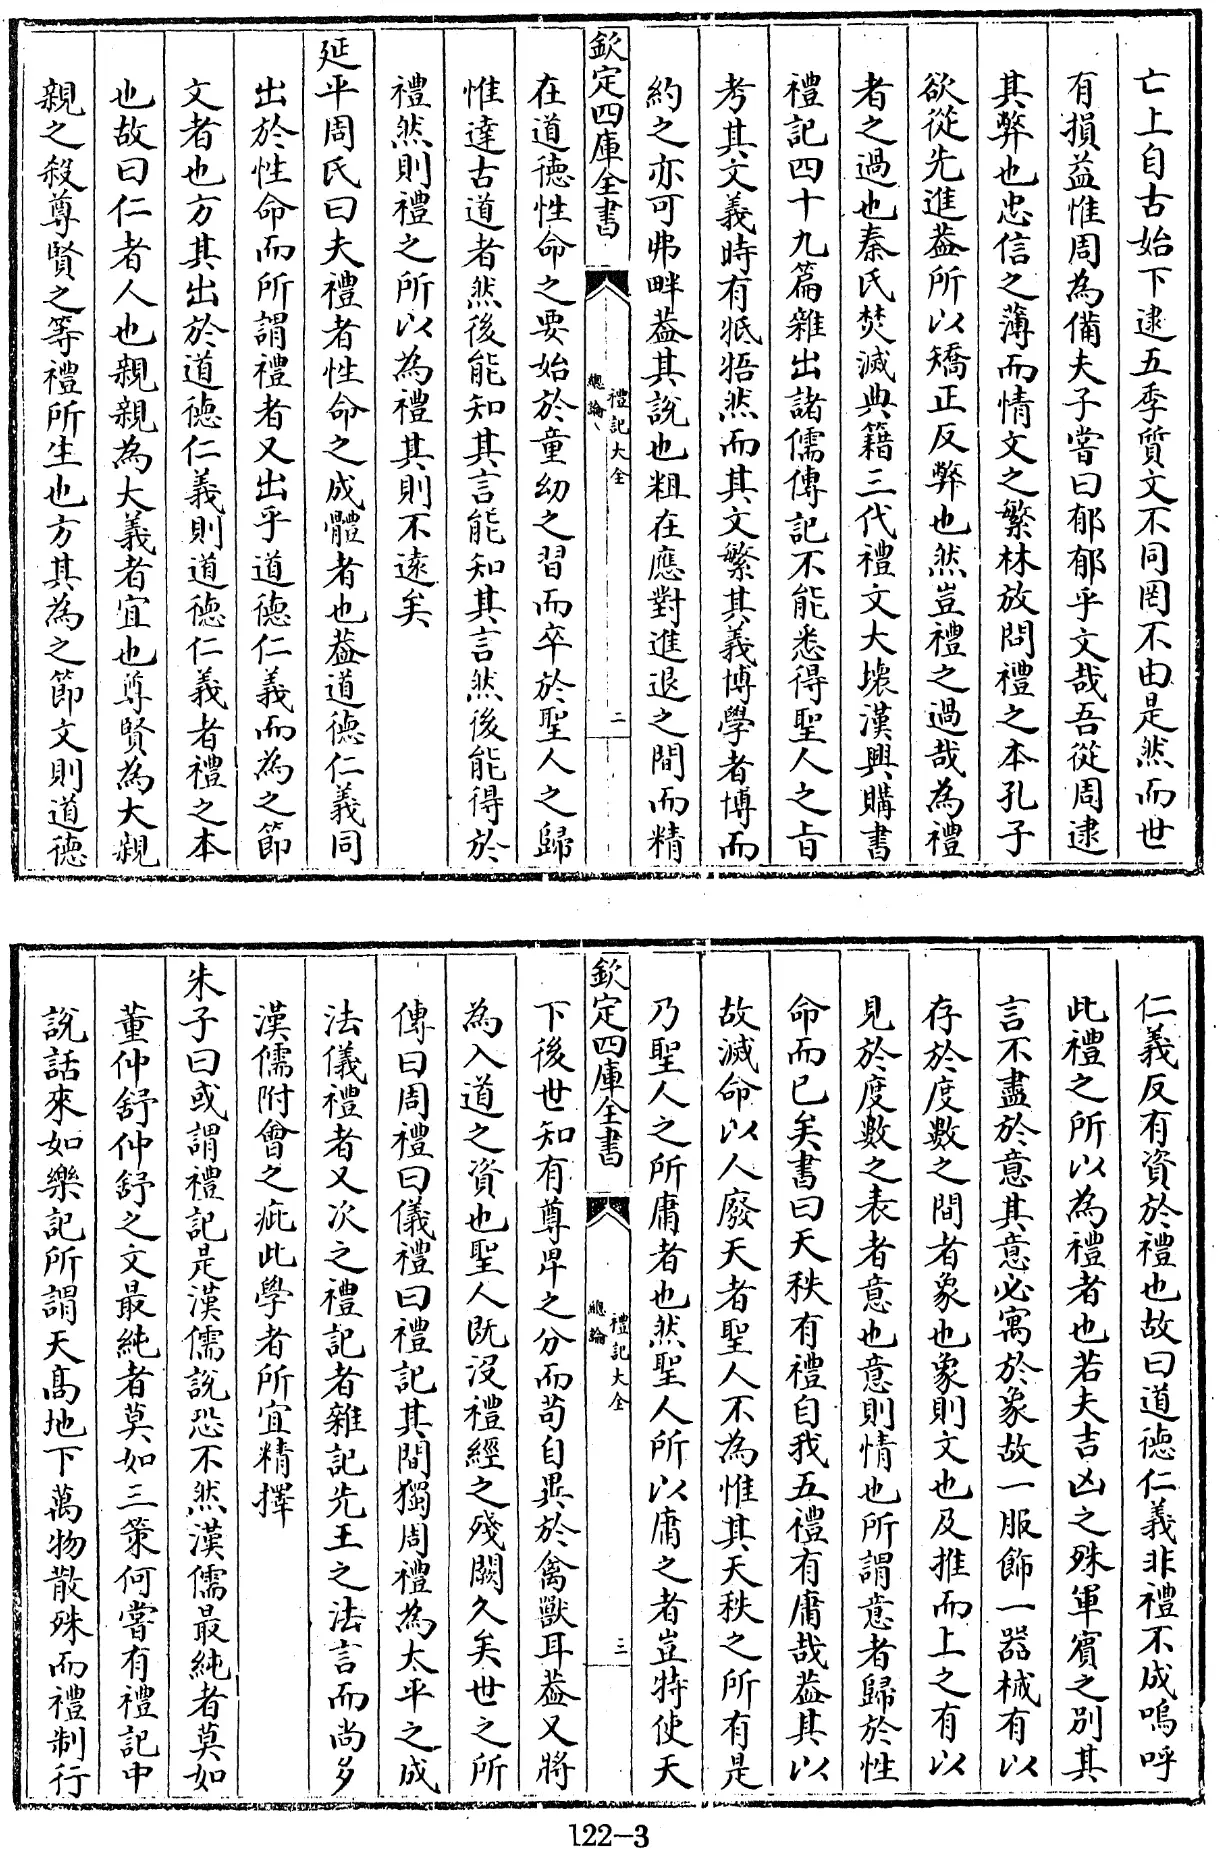 亡上自古始下逮五季質文不同罔不由是然而世
有損益惟周為備夫子嘗曰郁郁乎文哉吾從周逮
其弊也忠信之薄而情文之繁林放問禮之本孔子
欲從先進葢所以矯正反弊也然豈禮之過哉為禮
者之過也秦氏焚滅典籍三代禮文大壞漢興購書
禮記四十九篇雜出諸儒傳記不能悉得聖人之旨
考其文義時有牴牾然而其文繁其義博學者博而
約之亦可弗畔葢其說也粗在應對進退之間而精
欽定四庫全書
禮記大全
總論
二
在道德性命之要始於童幼之習而卒於聖人之歸
惟達古道者然後能知其言能知其言然後能得於
禮然則禮之所以為禮其則不遠矣
延平周氏曰夫禮者性命之成體者也葢道德仁義同
出於性命而所謂禮者又出乎道德仁義而為之節
文者也方其出於道德仁義則道德仁義者禮之本
也故曰仁者人也親親為大義者宜也尊賢為大親
親之殺尊賢之等禮所生也方其為之節文則道德
仁義反有資於禮也故曰道德仁義非禮不成嗚呼
此禮之所以為禮者也若夫吉凶之殊軍賓之別其
言不盡於意其意必寓於象故一服飾一器械有以
存於度數之間者象也象則文也及推而上之有以
見於度數之表者意也意則情也所謂意者歸於性
命而已矣書曰天秩有禮自我五禮有庸哉葢其以
故滅命以人廢天者聖人不為惟其天秩之所有是
乃聖人之所庸者也然聖人所以庸之者豈特使天
欽定四庫全書
禮記大全
總論
三
下後世知有尊卑之分而苟自異於禽獸耳葢又將
為入道之資也聖人既沒禮經之殘闕久矣世之所
傳曰周禮曰儀禮曰禮記其間獨周禮為太平之成
法儀禮者又次之禮記者雜記先王之法言而尚多
漢儒附會之疵此學者所宜精擇
朱子曰或謂禮記是漢儒說恐不然漢儒最純者莫如
董仲舒仲舒之文最純者莫如三策何嘗有禮記中
說話來如樂記所謂天髙地下萬物散殊而禮制行
122-3